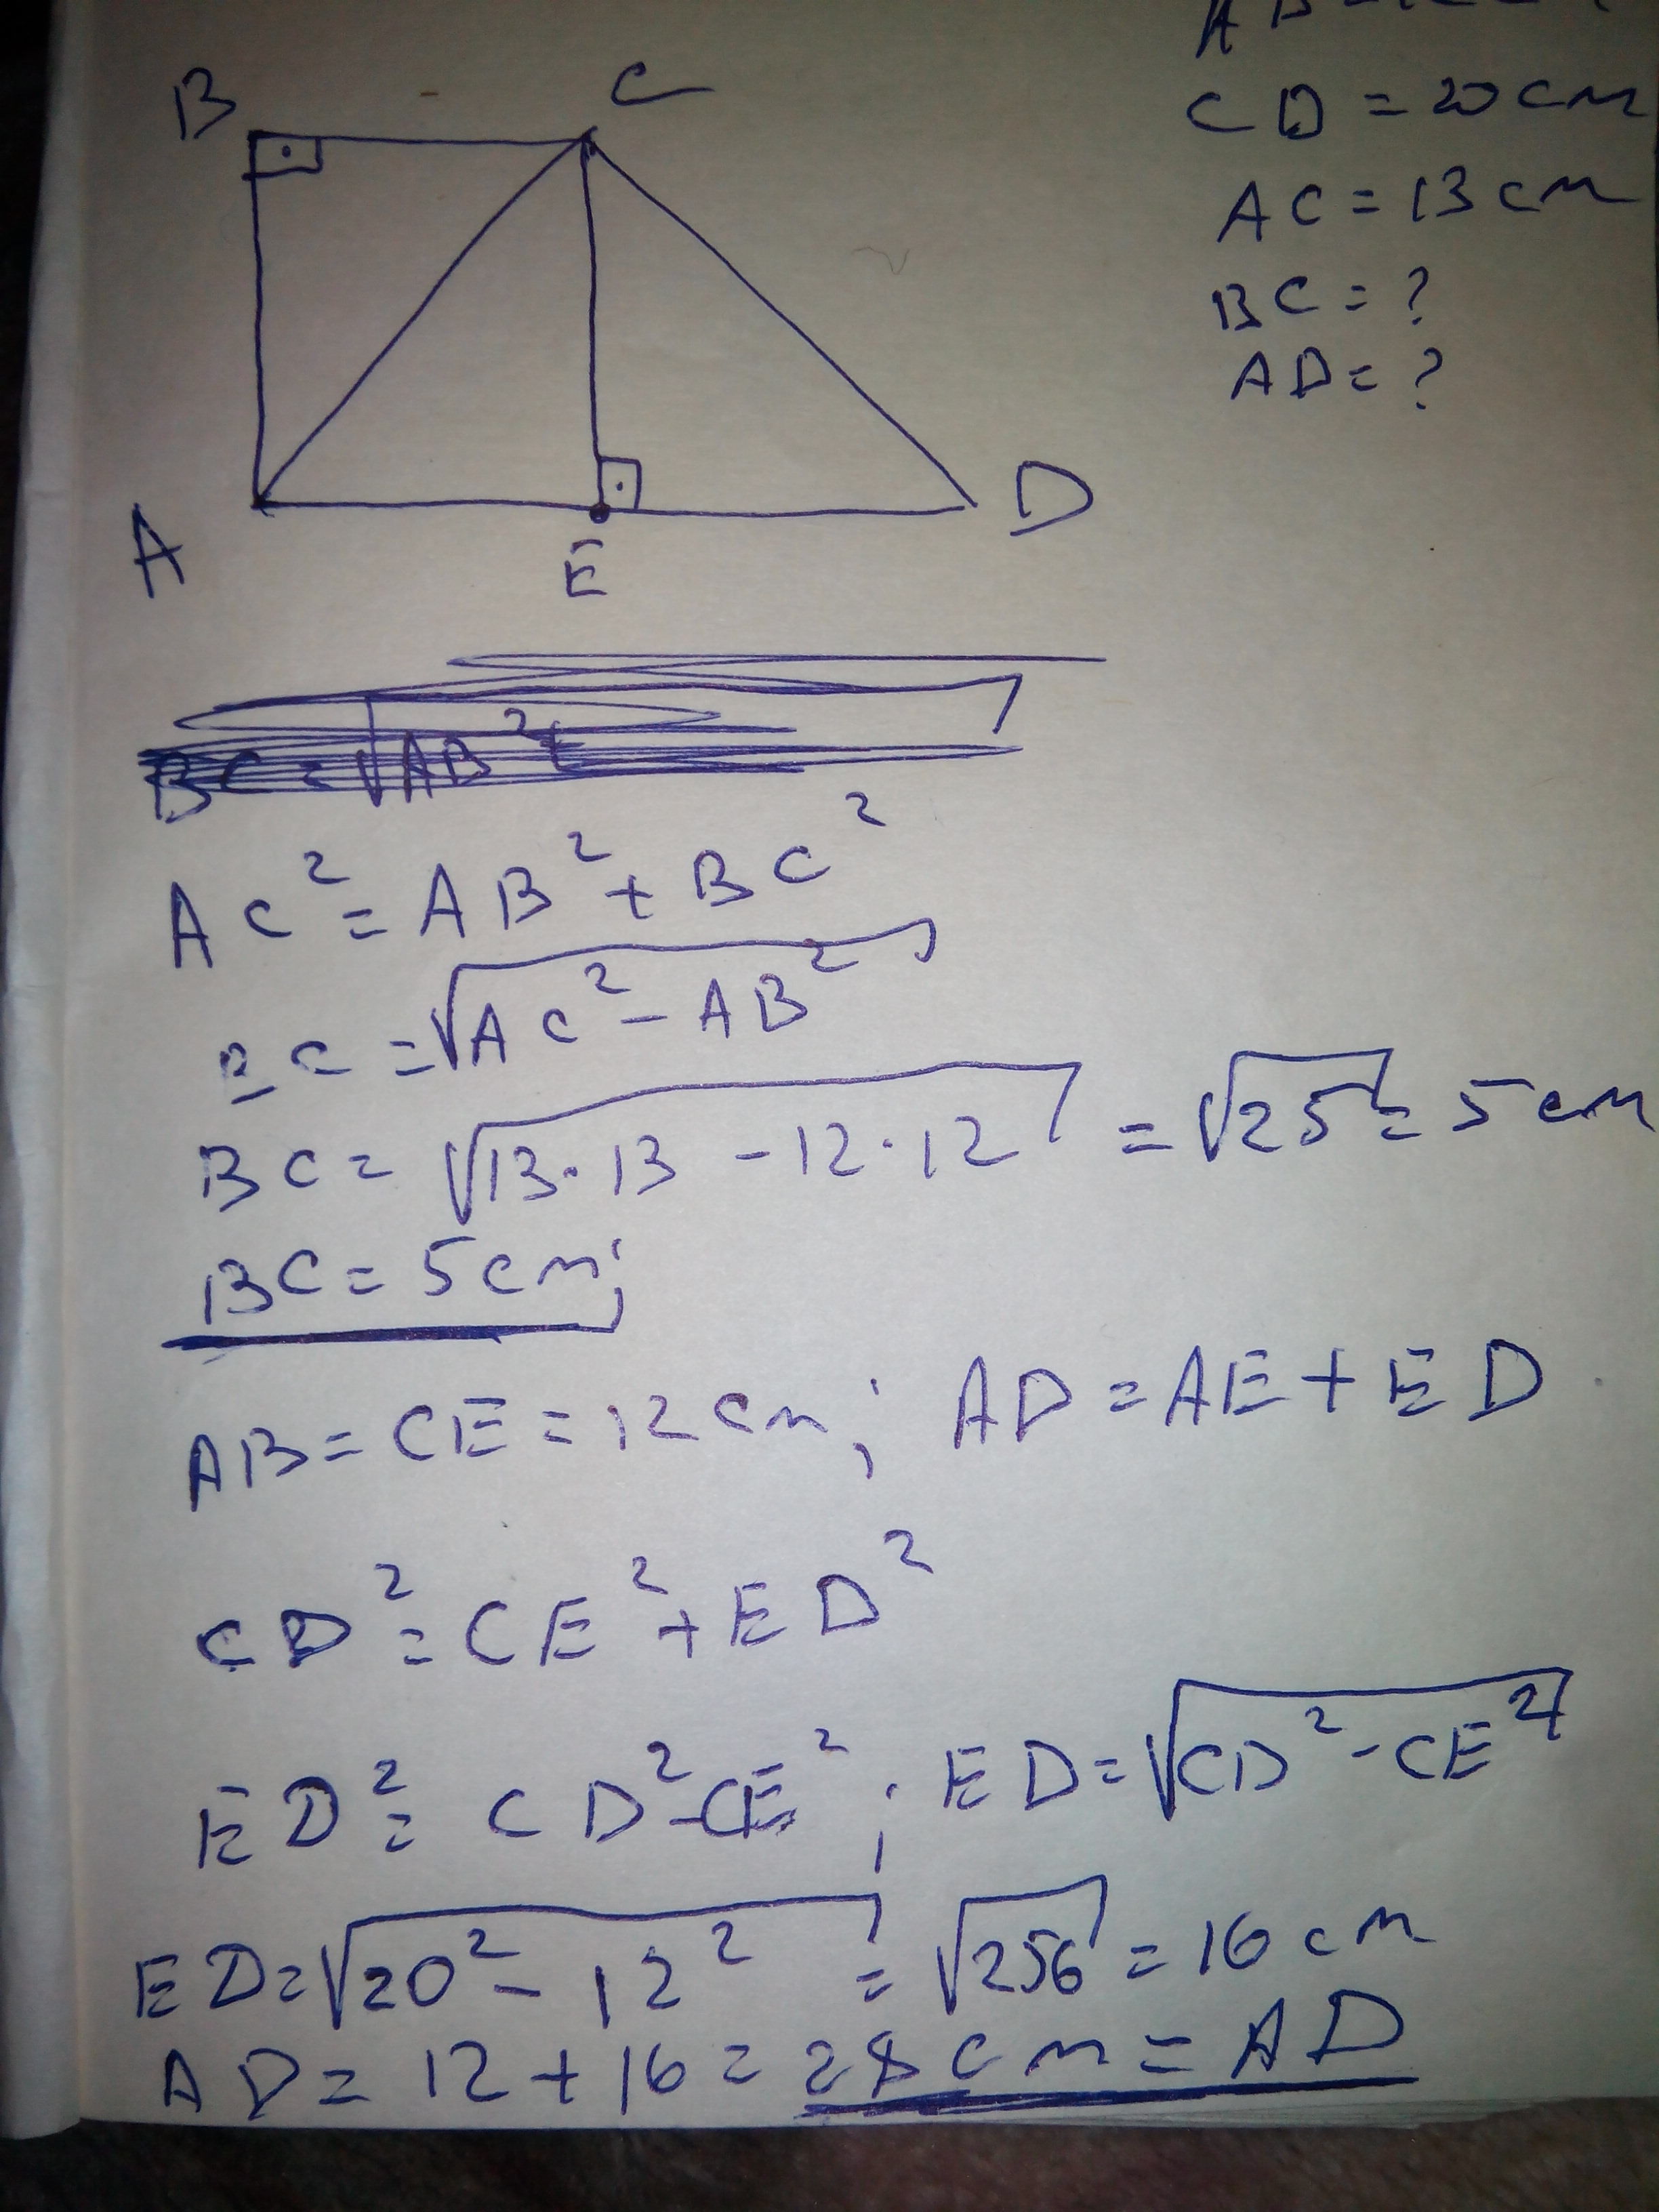 B
C
A
E
D
CD = 20 cm
AC = 13 cm
BC = ?
AD = ?
BC = √AB²
AC² = AB² + BC²
BC = √AC² - AB²
BC = √13·13 - 12·12 = √25 = 5 cm
BC = 5 cm;
AB = CE = 12 cm; AD = AE + ED
CD² = CE² + ED²
ED² = CD² - CE²; ED = √CD² - CE²
ED = √20² - 12² = √256 = 16 cm
AD = 12 + 16 = 28 cm = AD